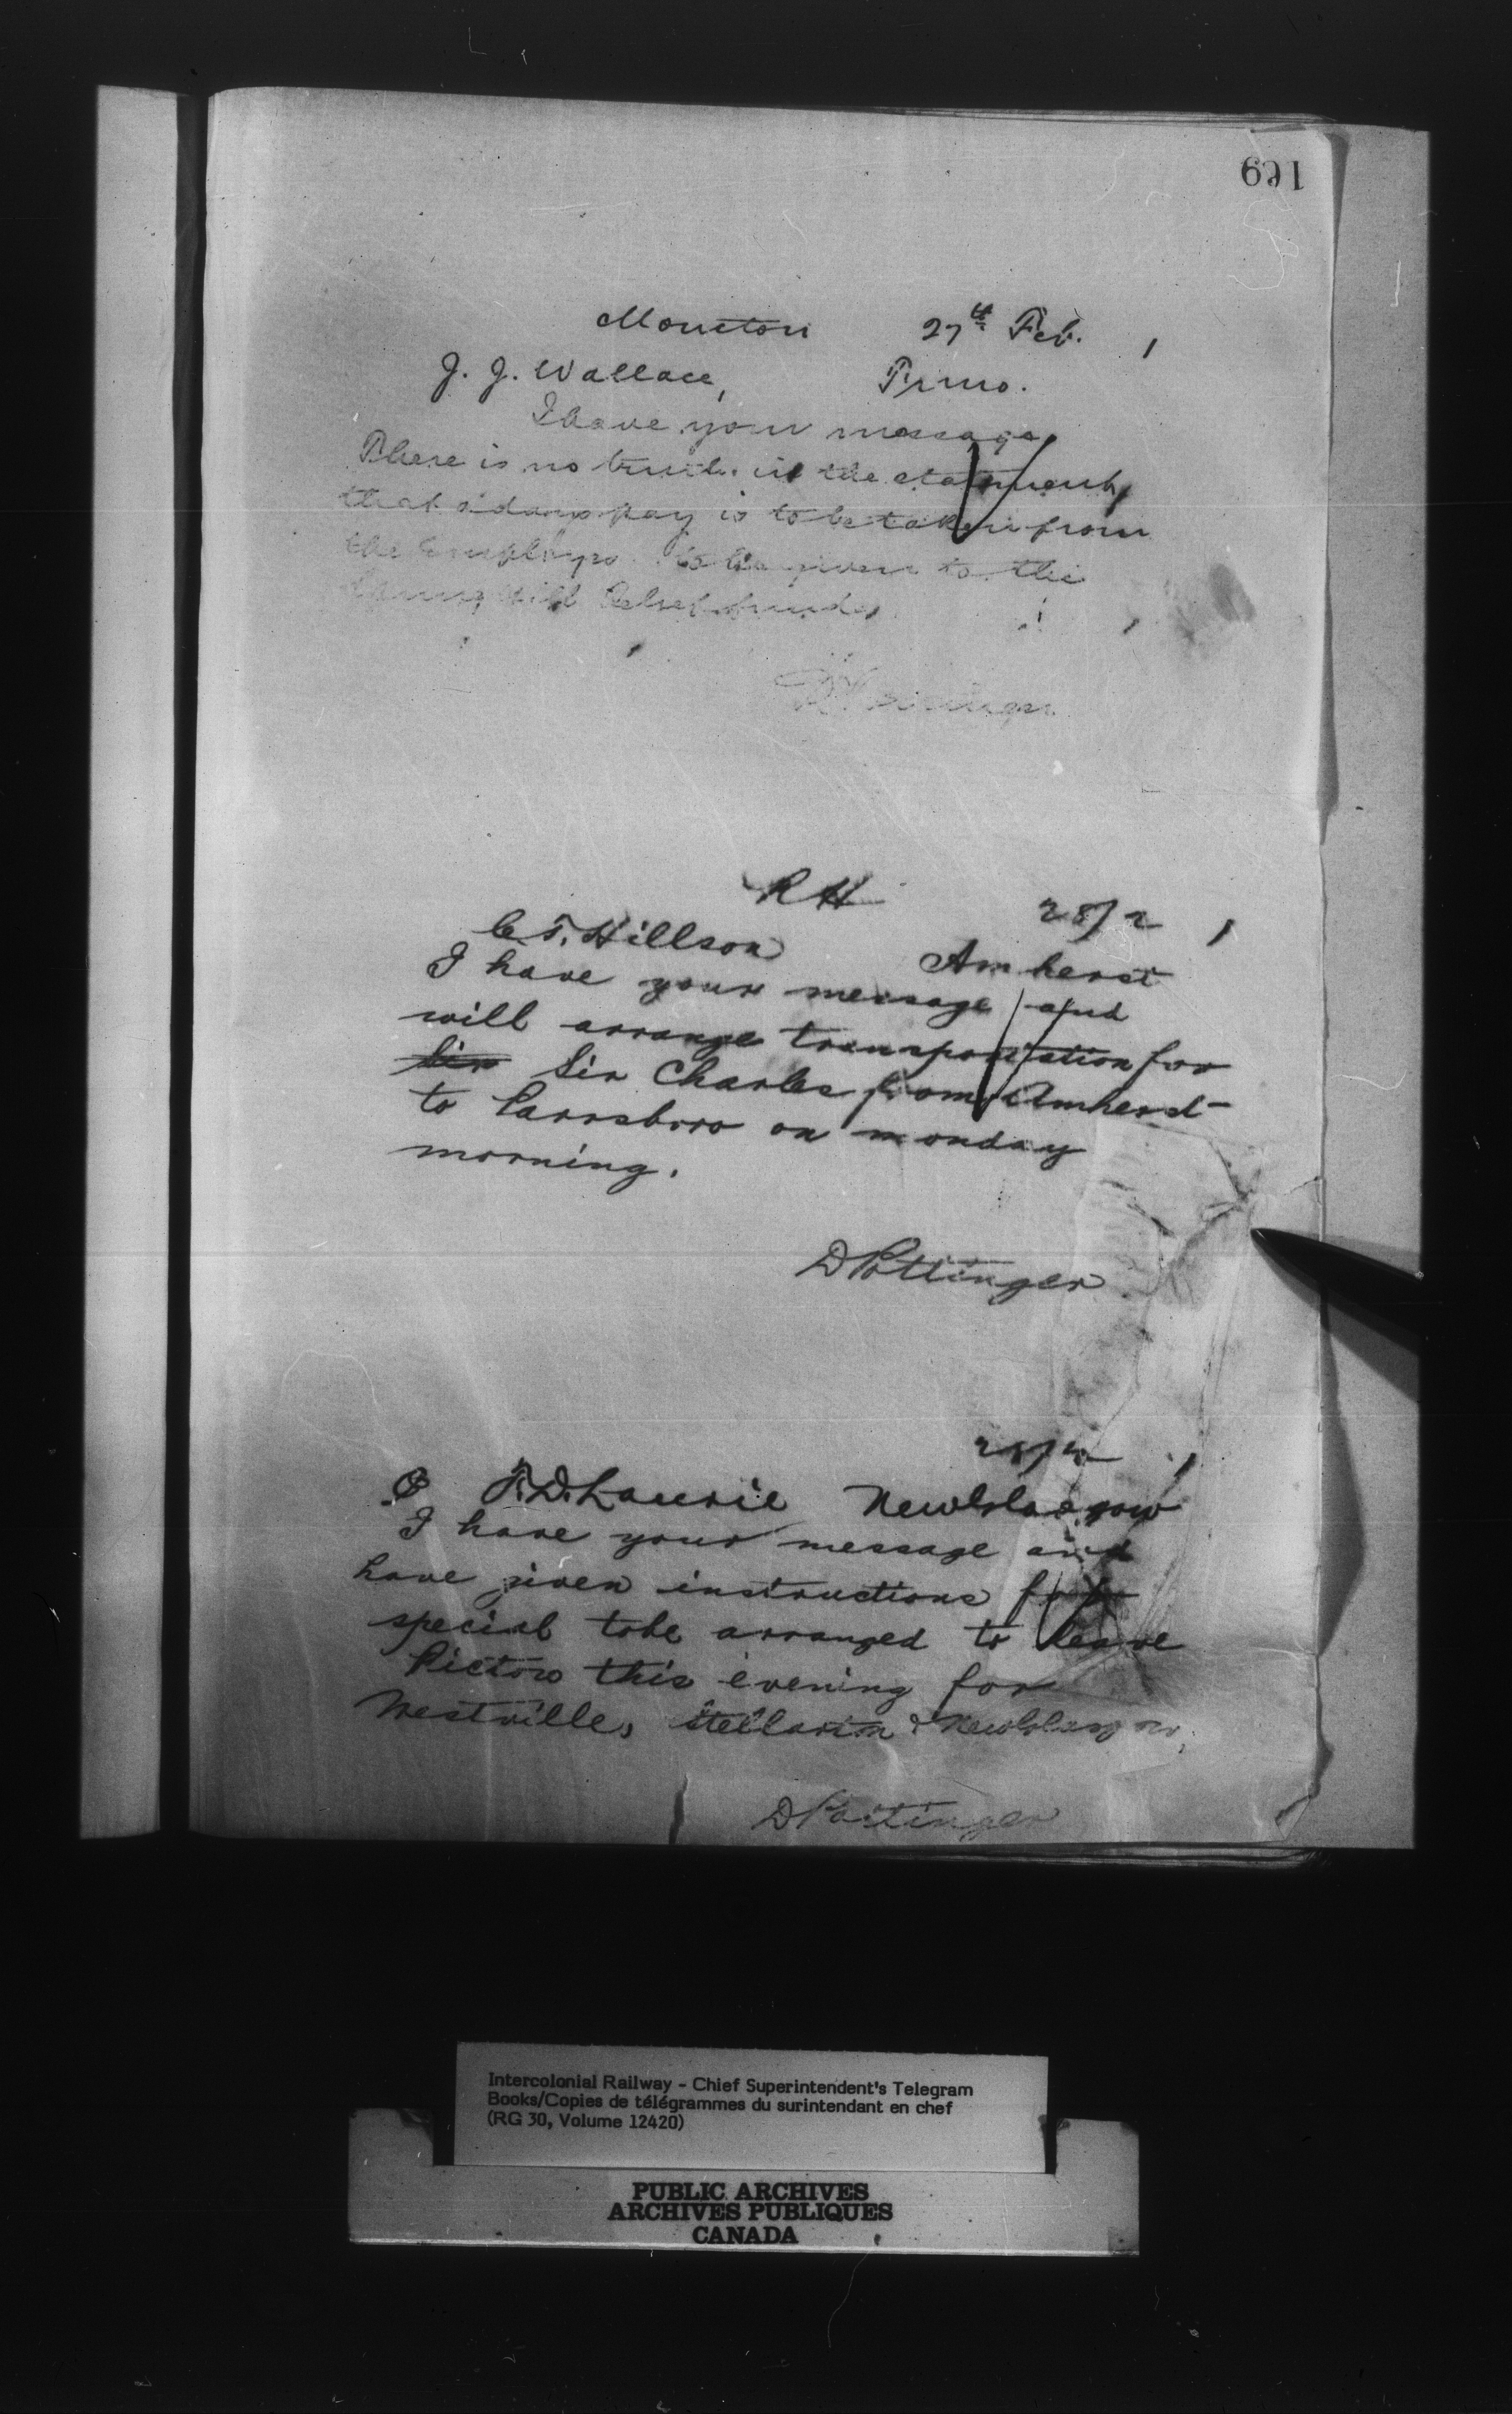 169
Moncton 27th Feb.
J. J. Wallace, Truro.
I have your message,
There is no truth in the statement,
that a days pay is to be taken from
the to be given to the
Spring Hill Relief fund,
D Pottinger
RH 28/2
C. T. Hillson Amherst
I have your message and
will arrange transportation for
Sir Sir Charles from Amherst
to Parrsboro on monday
morning.
D Pottinger
28/2
T. D. Laurie New Glasgow
I have your message and
have given instructions for
special to be arranged to leave
Pictou this evening for
Westville, Stellarton & New Glasgow,
D Pottinger
Intercolonial Railway - Chief Superintendent's Telegram
Books/Copies de télégrammes du surintendant en chef
(RG 30, Volume 12420)
PUBLIC ARCHIVES
ARCHIVES PUBLIQUES
CANADA